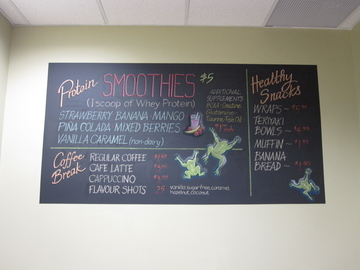 Protein SMOOTHIES $5
(1 scoop of Whey Protein)
STRAWBERRY BANANA MANGO
PINA COLADA MIXED BERRIES
VANILLA CARAMEL (non-dairy)
ADDITIONAL
SUPPLEMENTS
Creatine
Glutamine
Coffee Break
REGULAR COFFEE
CAFE LATTE
CAPPUCCINO
FLAVOUR SHOTS
vanilla, sugar-free, caramel,
hazelnut, coconut
Healthy
Snacks
WRAPS ~
TERIYAKI
BOWLS ~
MUFFIN ~
BANANA
BREAD ~